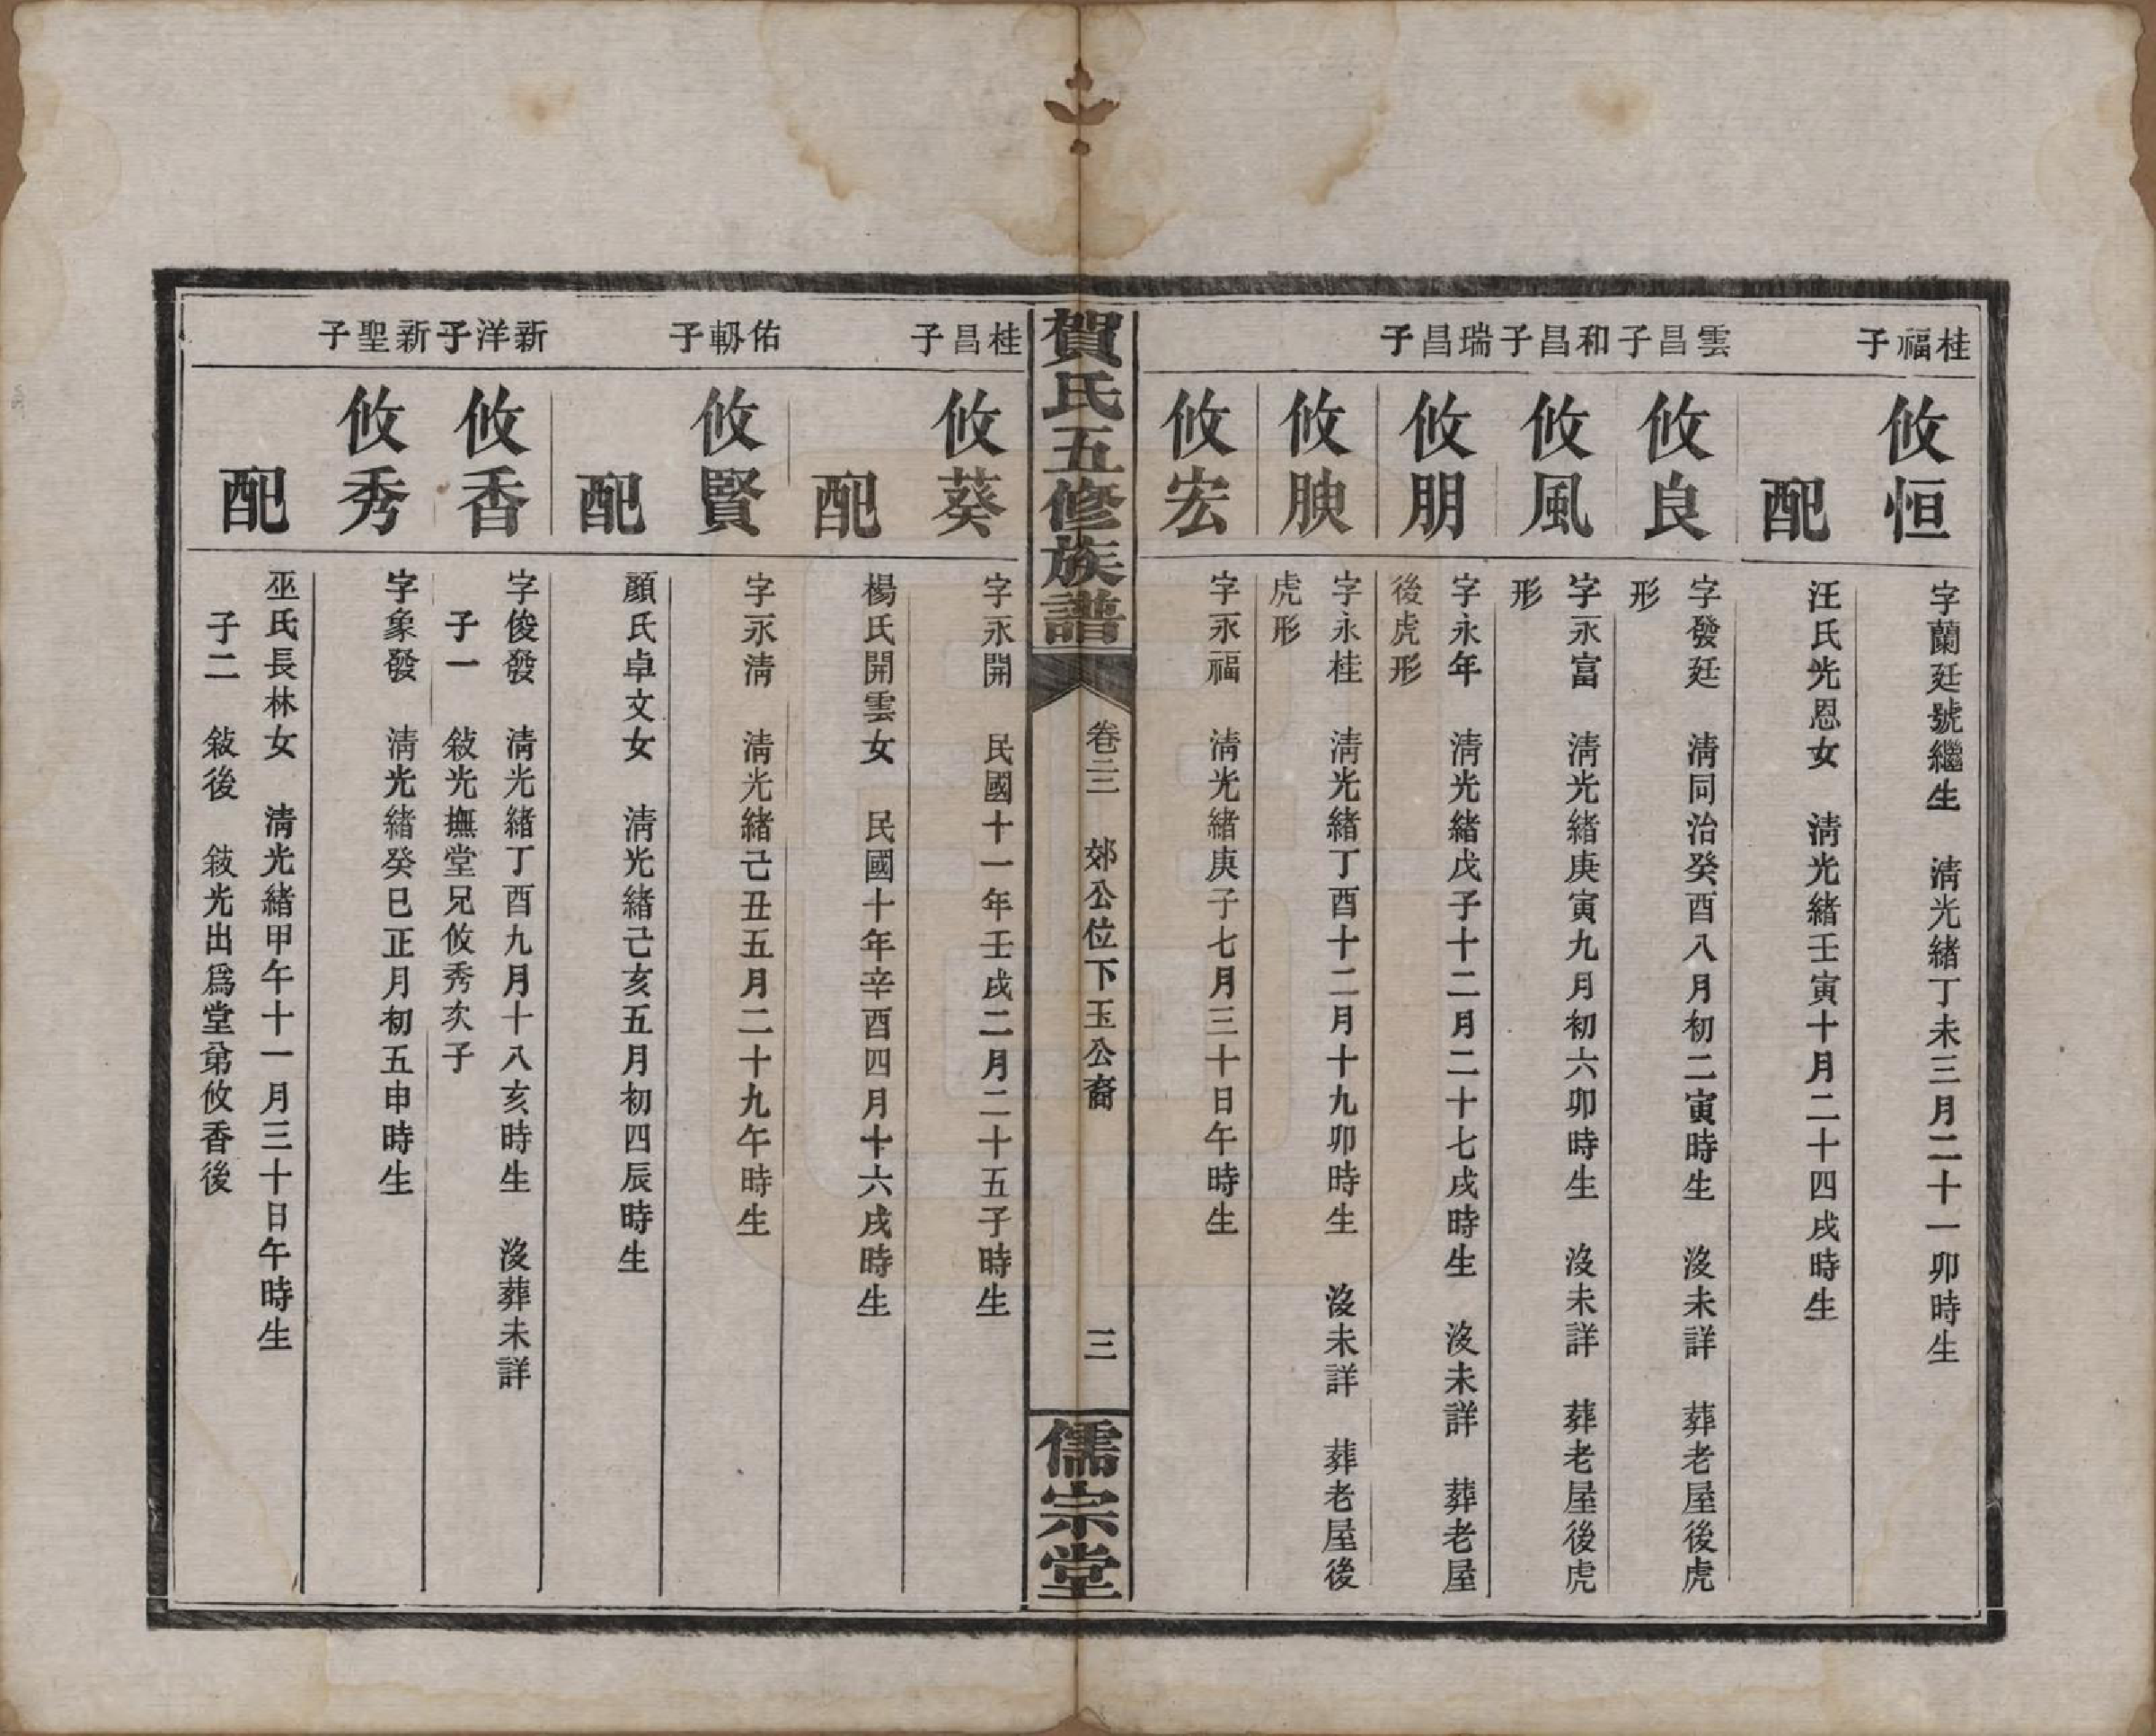 桂福子
攸恒
字蘭廷號繼生　淸光緒丁未三月二十一卯時生
配
汪氏光恩女　淸光緒壬寅十月二十四戌時生
雲昌子
攸良
字發廷　淸同治癸酉八月初二寅時生　沒未詳　葬老屋後虎
形
和昌子
攸風
字永富　淸光緒庚寅九月初六卯時生　沒未詳　葬老屋後虎
形
瑞昌子
攸朋
字永年　淸光緒戊子十二月二十七戌時生　沒未詳　葬老屋
後虎形
攸腴
字永桂　淸光緒丁酉十二月十九卯時生　沒未詳　葬老屋後
虎形
攸宏
字永福　淸光緒庚子七月三十日午時生
賀氏五修族譜
卷二三　郊公位下玉公裔
三
儒宗堂
桂昌子
攸葵
字永開　民國十一年壬戌二月二十五子時生
配
楊氏開雲女　民國十年辛酉四月十六戌時生
佑軔子
攸賢
字永淸　淸光緒己丑五月二十九午時生
配
顏氏卓文女　淸光緒己亥五月初四辰時生
新洋子
攸香
字俊發　淸光緒丁酉九月十八亥時生　沒葬未詳
子一　敍光撫堂兄攸秀次子
新聖子
攸秀
字象發　淸光緒癸巳正月初五申時生
配
巫氏長林女　淸光緒甲午十一月三十日午時生
子二　敍後　敍光出爲堂弟攸香後